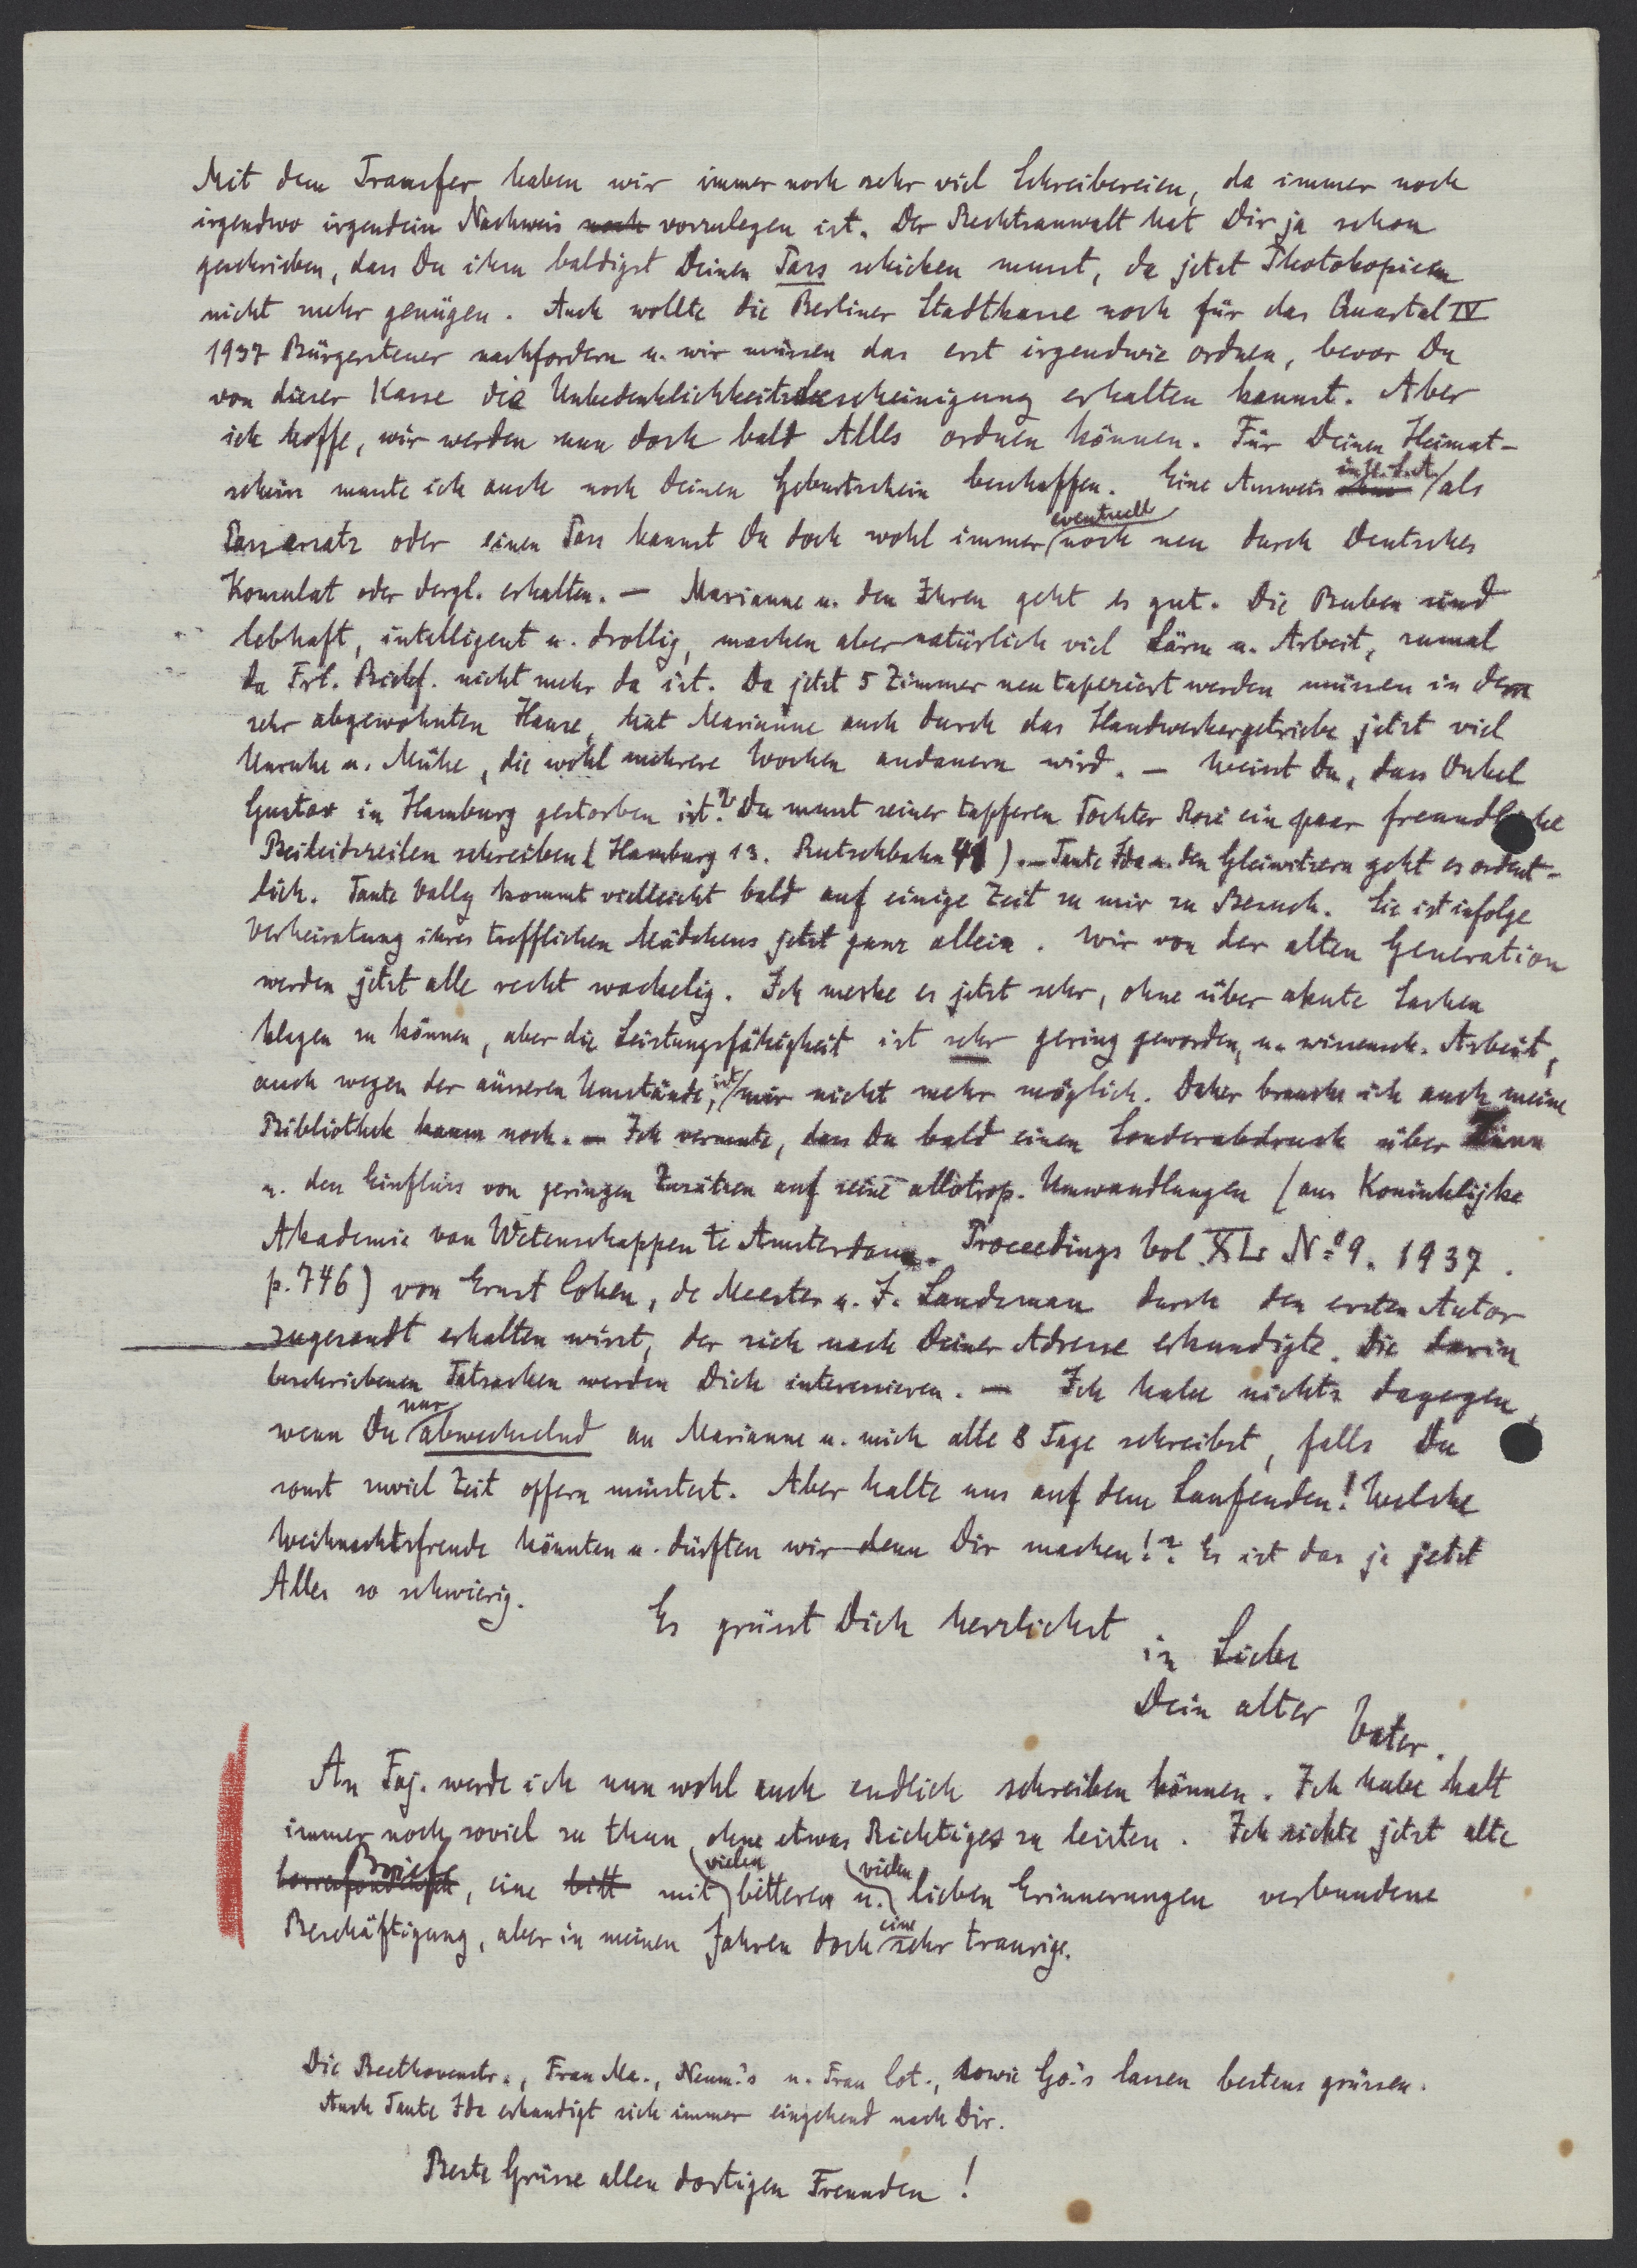 Mit dem Transfer haben wir immer noch sehr viel Schreibereien, da immer noch
irgendwo irgendein Nachweis noch vorzulegen ist. Der Rechtsanwalt hat Dir ja schon
geschrieben, dass Du ihm baldigst Deinen Pass schicken musst, da jetzt Photokopieen
nicht mehr genügen. Auch wollte die Berliner Stadtkasse noch für das Quartal IV
1937 Bürgersteuer nachfordern u. wir müssen das erst irgendwie ordnen, bevor Du
von dieser Kasse die Unbedenklichkeitsbescheinigung erhalten kannst. Aber
ich hoffe, wir werden nun doch bald Alles ordnen können. Für Deinen Heimat-
schein musste ich auch noch Deinen Geburtschein beschaffen. Eine Ausweis als
Passersatz oder einen Pass kannst Du doch wohl immer eventuell noch neu durch Deutsches
Konsulat oder dergl. erhalten. — Marianne u. den Ihren geht es gut. Die Buben sind
lebhaft, intelligent u. drollig, machen aber natürlich viel Lärm u. Arbeit, zumal
da Frl. nicht mehr da ist. Da jetzt 5 Zimmer neu tapeziert werden müssen in dem
sehr abgewohnten Hause, hat Marianne auch durch das Handwerkergetriebe jetzt viel
Unruhe u. Mühe, die wohl mehrere Wochen andauern wird. — Weisst Du, dass Onkel
Gustav in Hamburg gestorben ist? Du musst seiner tapferen Tochter Rose ein paar freundliche
Beileidszeilen schreiben (Hamburg 13. Rutschbahn 41). — Tante Ida u. den Gleiwitzern geht es ordent-
lich. Tante Vally kommt vielleicht bald auf einige Zeit zu mir zu Besuch. Sie ist infolge
Verheiratung ihres trefflichen Mädchens jetzt ganz allein. Wir von der alten Generation
werden jetzt alle recht wackelig. Ich merke es jetzt sehr, ohne über akute Sachen
klagen zu können, aber die Leistungsfähigkeit ist sehr gering geworden, u. wissensch. Arbeit,
auch wegen der äusseren Umstände, ist mir nicht mehr möglich. Daher brauche ich auch meine
Bibliothek kaum noch. — Ich vermute, dass Du bald einen Sonderabdruck über Zinn
u. den Einfluss von geringen Zusätzen auf seine allotrop. Umwandlungen (aus Koninklijke
Akademie van Wetenschappen te Amsterdam. Proceedings Vol. XL. No 9. 1937.
p. 746) von Ernst Cohen, de Meester u. J. Landsman durch den ersten Autor
zugesandt erhalten wirst, der sich nach Deiner Adresse erkundigte. Die darin
beschriebenen Tatsachen werden Dich interessieren. — Ich habe nichts dagegen,
wenn Du nur abwechselnd an Marianne u. mich alle 8 Tage schreibst, falls Du
sonst zuviel Zeit opfern müsstest. Aber halte uns auf dem Laufenden! Welche
Weihnachtsfreude könnten u. dürften wir denn Dir machen!? Es ist das ja jetzt
Alles so schwierig.
Es grüsst Dich herzlichst
in Liebe
Dein alter Vater.
An Faj. werde ich nun wohl auch endlich schreiben können. Ich habe halt
immer noch soviel zu thun, ohne etwas Richtiges zu leisten. Ich sichte jetzt alte
Briefe, eine bitt mit vielen bitteren u. vielen lieben Erinnerungen verbundene
Beschäftigung, aber in meinen Jahren doch eine sehr traurige.
Die Beethovenstr., Frau Ma., Neum.'s u. Frau Cot., sowie Gö.'s lassen bestens grüssen.
Auch Tante Ida erkundigt sich immer eingehend nach Dir.
Beste Grüsse allen dortigen Freunden!